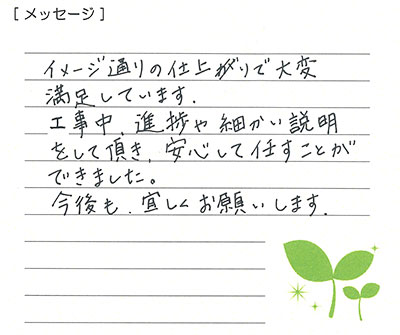 [メッセージ]
イメージ通りの仕上がりで大変
満足しています.
工事中, 進捗や細かい説明
をして頂き, 安心して任すことが
できました。
今後も, 宜しくお願いします.